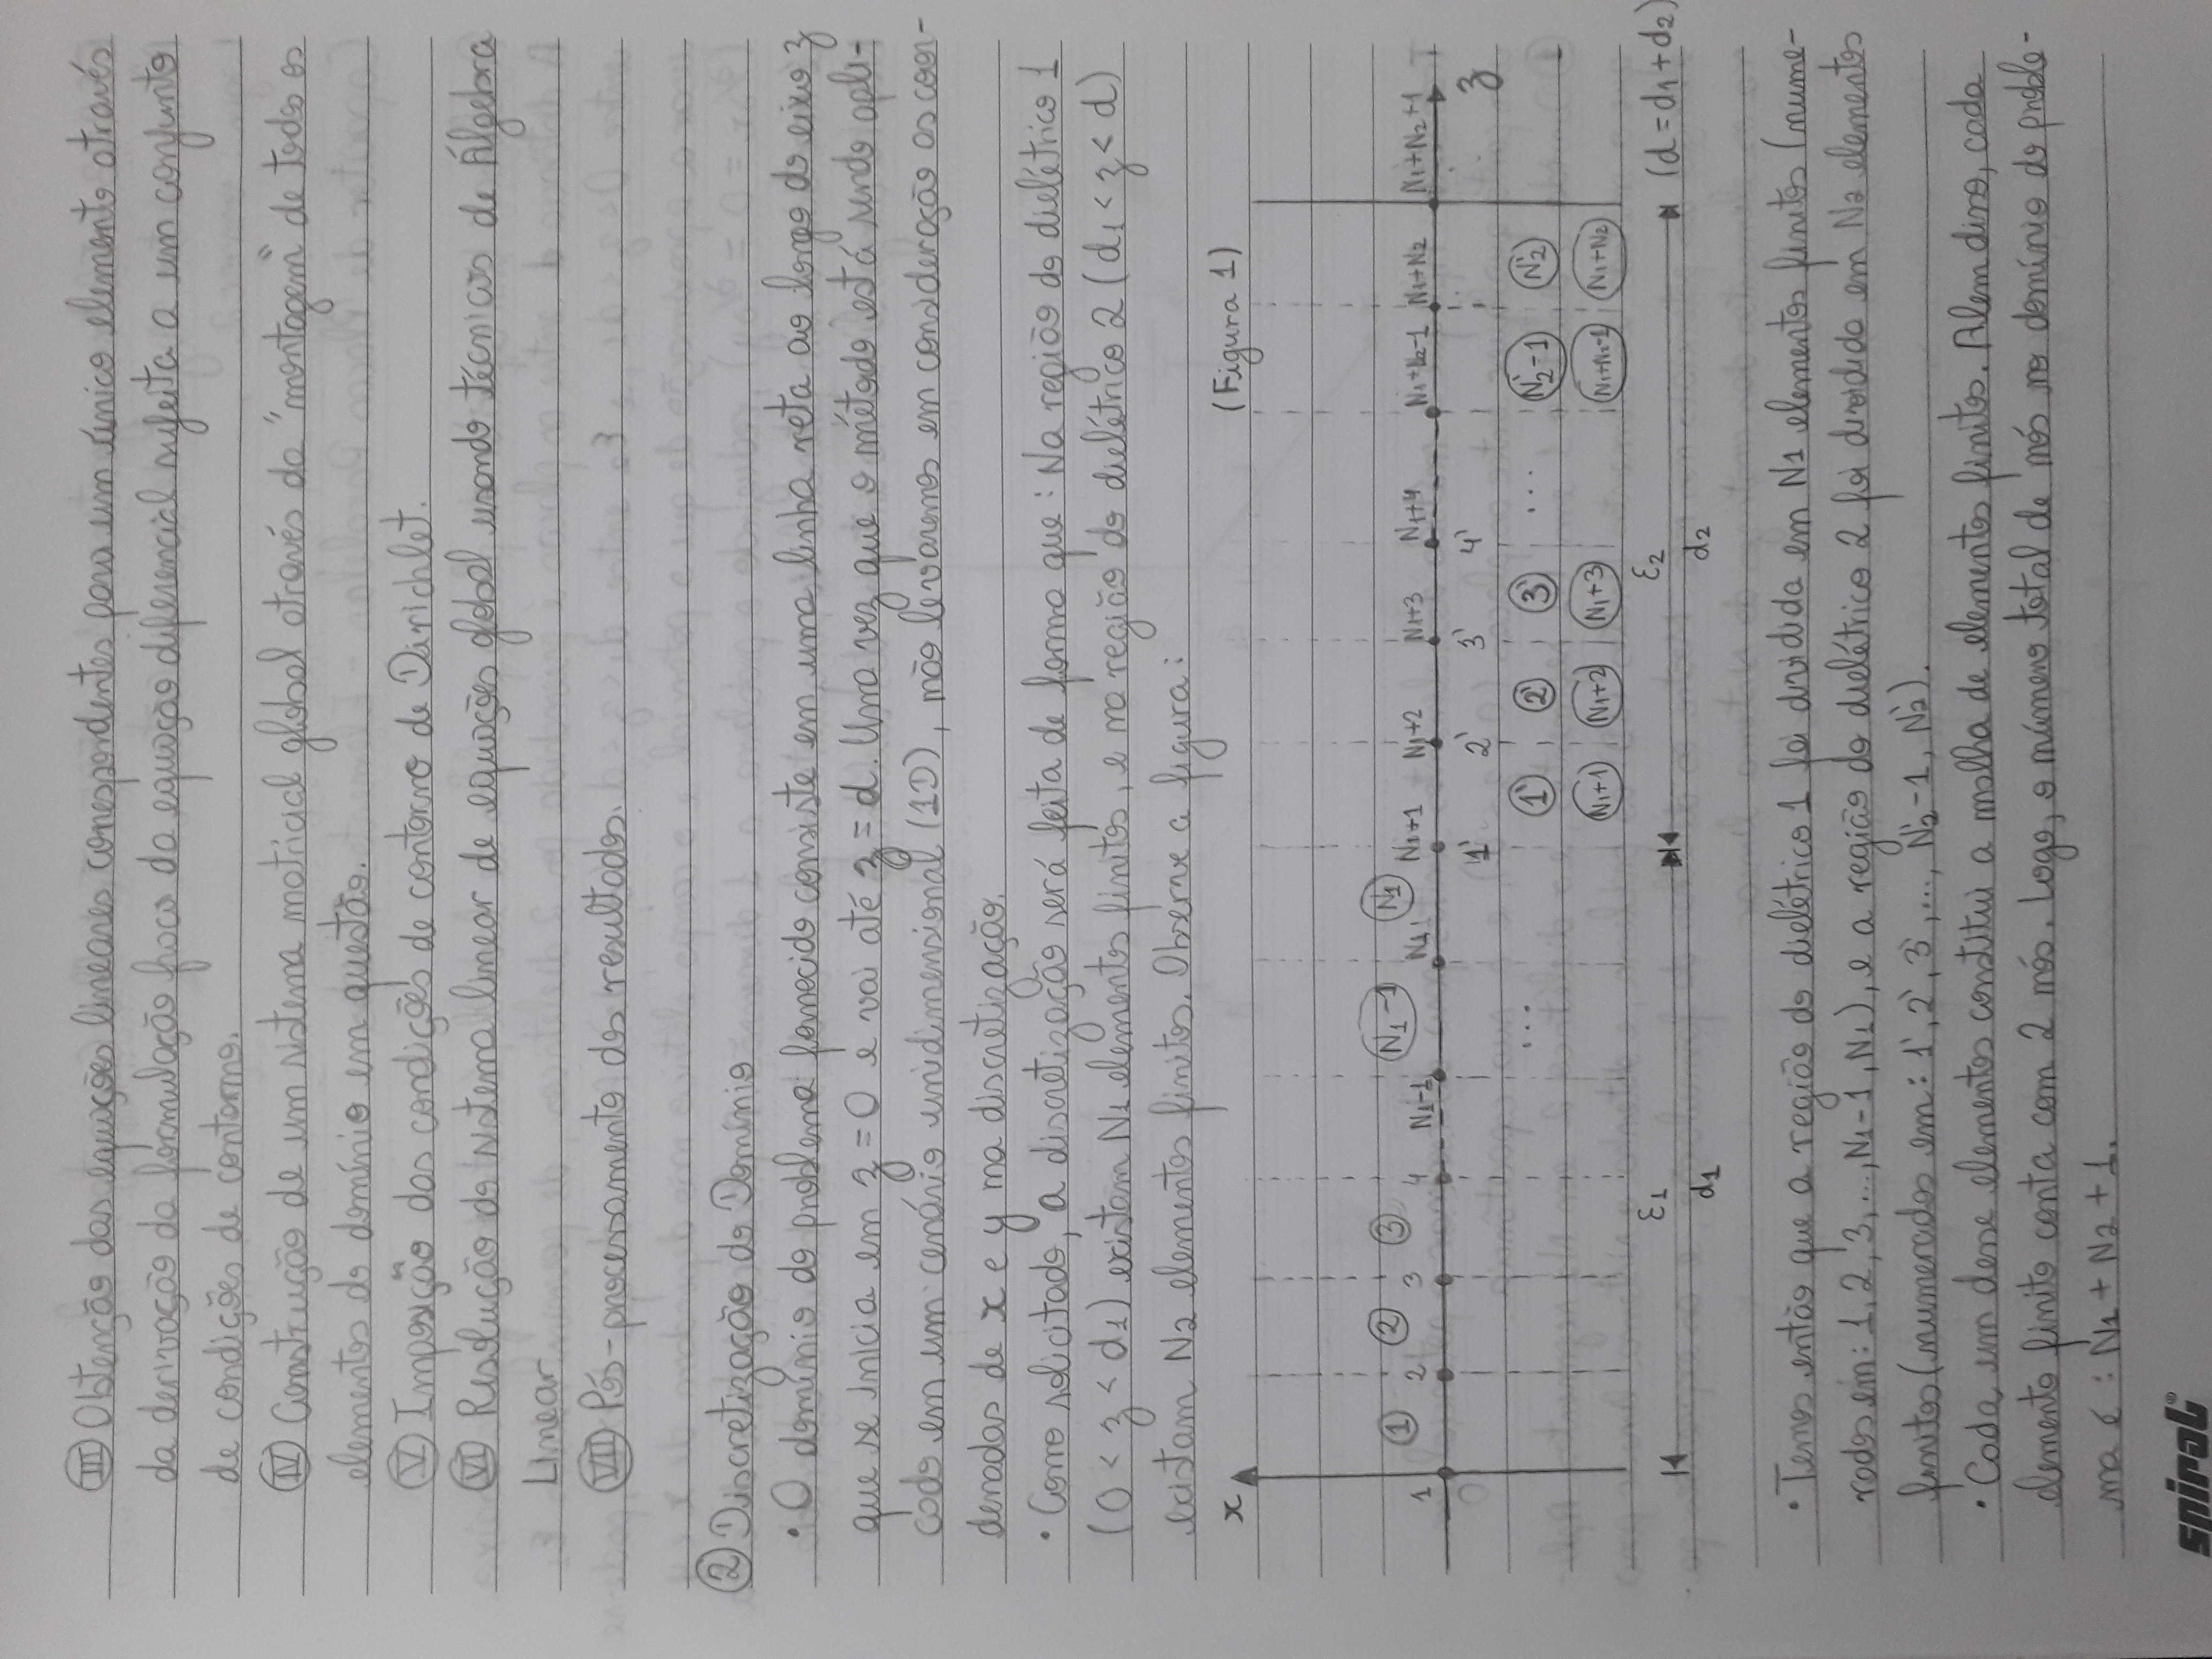 III Obtenção das equações lineares correspondentes para um único elemento através
da derivação da formulação fraca da equação diferencial sujeita a um conjunto
de condições de contorno.
IV Construção de um sistema matricial global através da "montagem" de todos os
elementos do domínio em questão.
V Imposição das condições de contorno de Dirichlet.
VI Resolução do sistema linear de equações global usando técnicas de Álgebra
Linear
VII Pós-processamento dos resultados.
2 Discretização do Domínio
• O domínio do problema fornecido consiste em uma linha reta ao longo do eixo z
que se inicia em z = 0 e vai até z = d. Uma vez que o método está sendo apli-
cado em um cenário unidimensional (1D), não levaremos em consideração as coor-
denadas de x e y na discretização.
• Como solicitado, a discretização será feita de forma que: Na região do dielétrico 1
(0 < z < d1) existam N1 elementos finitos, e na região do dielétrico 2 (d1 < z < d)
existam N2 elementos finitos. Observe a figura:
x (Figura 1)
1 2 3 N1-1 N1
1 2 3 4 N1-1 N1 N1+1 N1+2 N1+3 N1+4 N1+N2-1 N1+N2 N1+N2+1
0 1' 2' 3' 4' z
... 1' 2' 3' ... N2'-1 N2'
N1+1 N1+2 N1+3 N1+N2-1 N1+N2
ε1 ε2 (d = d1 + d2)
d1 d2
• Temos então que a região do dielétrico 1 foi dividida em N1 elementos finitos (nume-
rados em: 1, 2, 3, ..., N1-1, N1), e a região do dielétrico 2 foi dividida em N2 elementos
finitos (numerados em: 1', 2', 3', ..., N2'-1, N2').
• Cada um desse elementos constitui a malha de elementos finitos. Alem disso, cada
elemento finito conta com 2 nós. Logo, o número total de nós no domínio do proble-
ma é: N1 + N2 + 1.
spiral®